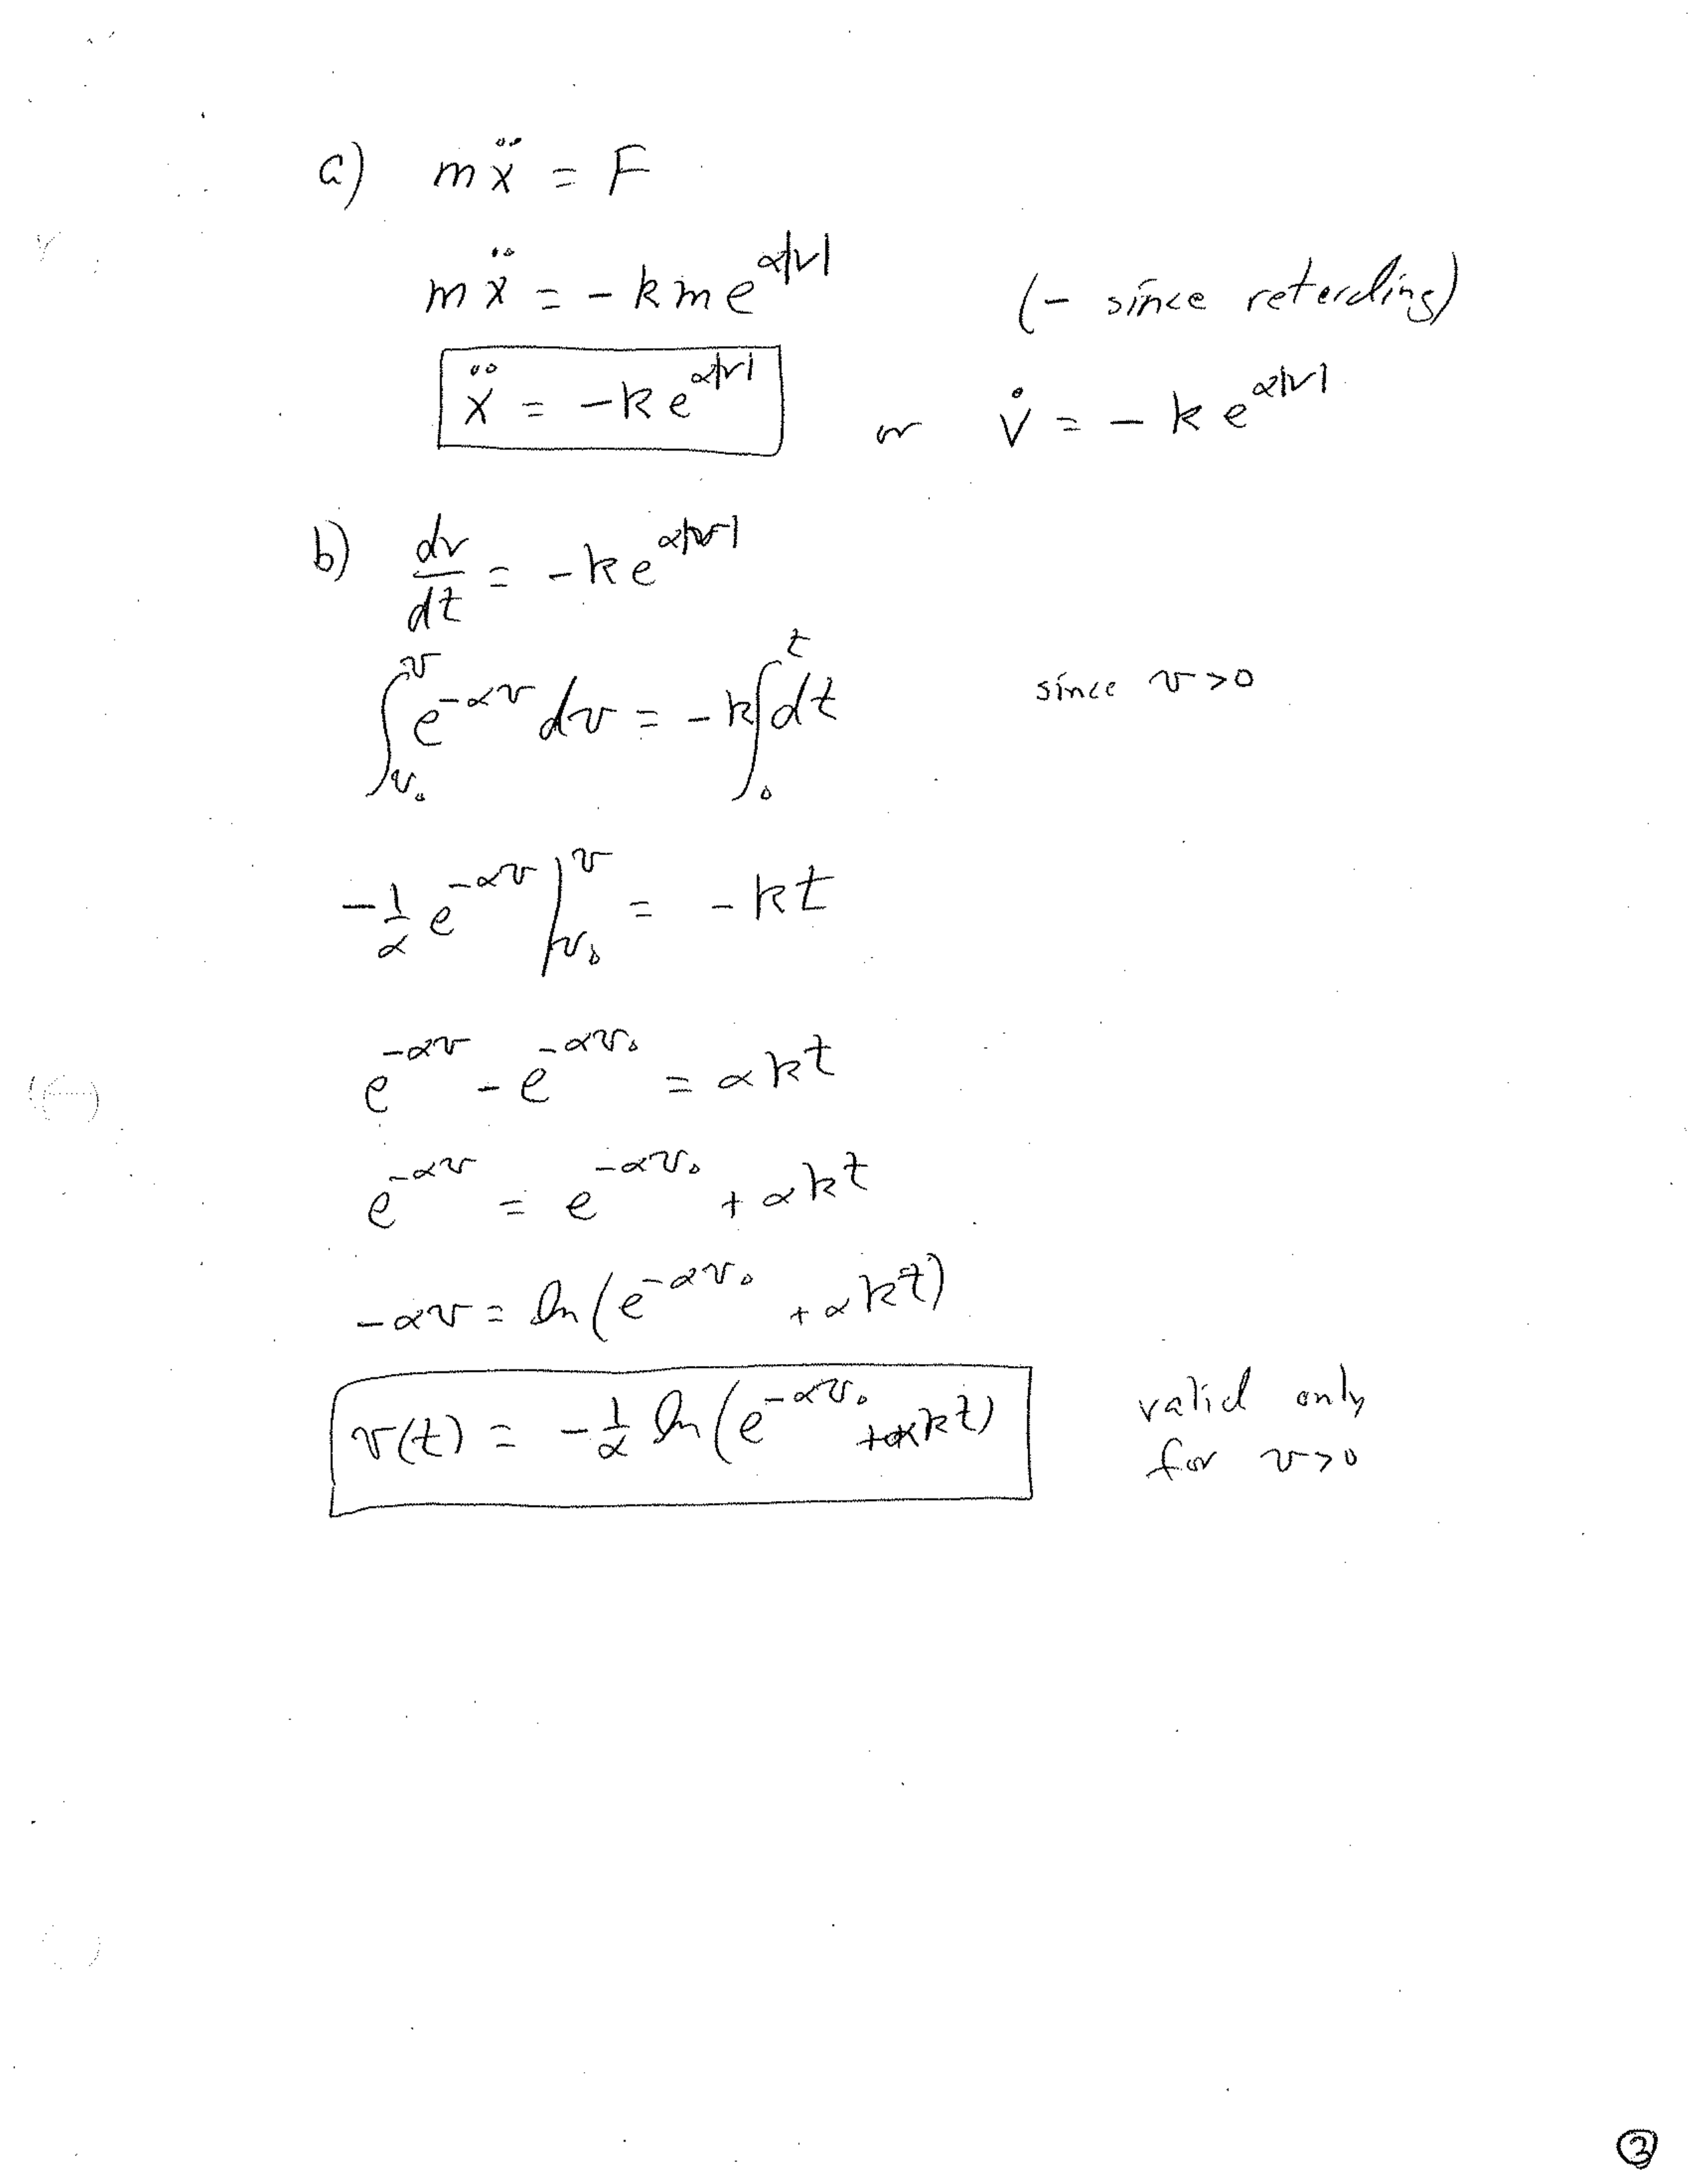 a) mẍ = F
mẍ = -kme^{α|v|} (- since retarding)
ẍ = -ke^{α|v|} or v̇ = -ke^{α|v|}
b) dv/dt = -ke^{α|v|}
∫_{v₀}^{v} e^{-αv} dv = -k∫_{0}^{t} dt since v>0
-1/α e^{-αv} |_{v₀}^{v} = -kt
e^{-αv} - e^{-αv₀} = αkt
e^{-αv} = e^{-αv₀} + αkt
-αv = ln(e^{-αv₀} + αkt)
v(t) = -1/α ln(e^{-αv₀} + αkt) valid only
for v>0
③